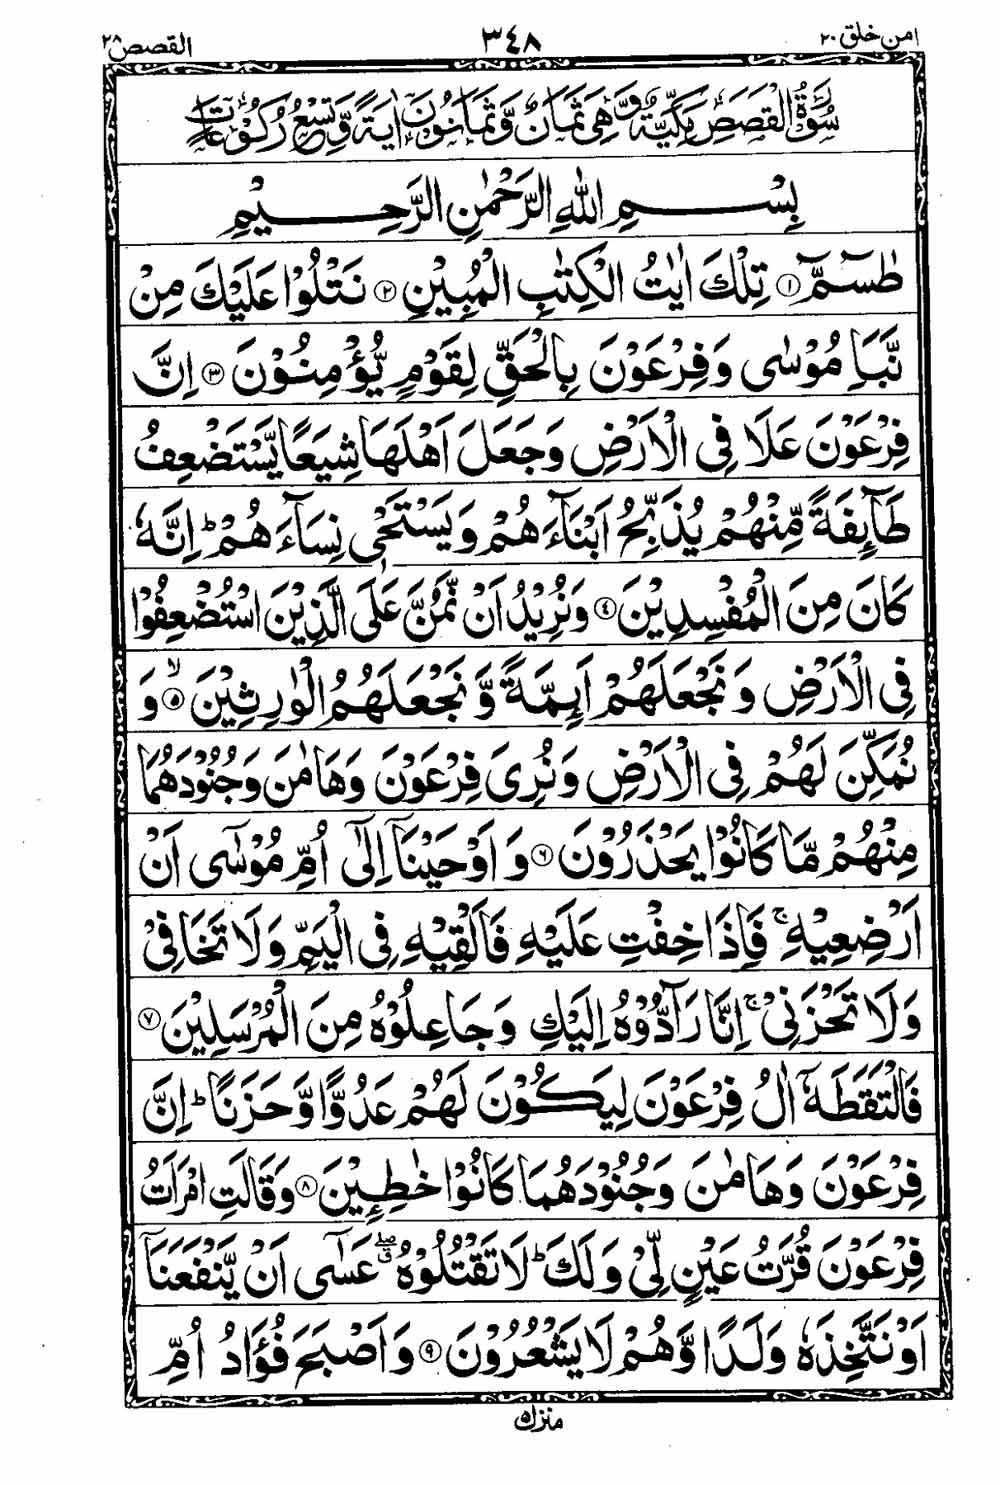 امن خلق ٢٠
٣٤٨
القصص ٢٨
سُوْرَةُ الْقَصَصِ مَكِّيَّةٌ وَّهِيَ ثَمَانٌ وَّثَمَانُوْنَ اٰيَةً وَّتِسْعُ رُكُوْعَاتٍ
بِسْمِ اللّٰهِ الرَّحْمٰنِ الرَّحِيْمِ
طٰسٓمّٓ ۝١ تِلْكَ اٰيٰتُ الْكِتٰبِ الْمُبِيْنِ ۝٢ نَتْلُوْا عَلَيْكَ مِنْ
نَّبَاِ مُوْسٰى وَفِرْعَوْنَ بِالْحَقِّ لِقَوْمٍ يُّؤْمِنُوْنَ ۝٣ اِنَّ
فِرْعَوْنَ عَلَا فِى الْاَرْضِ وَجَعَلَ اَهْلَهَا شِيَعًا يَّسْتَضْعِفُ
طَآئِفَةً مِّنْهُمْ يُذَبِّحُ اَبْنَآءَهُمْ وَيَسْتَحْىٖ نِسَآءَهُمْ ؕ اِنَّهٗ
كَانَ مِنَ الْمُفْسِدِيْنَ ۝٤ وَنُرِيْدُ اَنْ نَّمُنَّ عَلَى الَّذِيْنَ اسْتُضْعِفُوْا
فِى الْاَرْضِ وَنَجْعَلَهُمْ اَئِمَّةً وَّنَجْعَلَهُمُ الْوٰرِثِيْنَ ۙ۝٥ وَ
نُمَكِّنَ لَهُمْ فِى الْاَرْضِ وَنُرِىَ فِرْعَوْنَ وَهَامٰنَ وَجُنُوْدَهُمَا
مِنْهُمْ مَّا كَانُوْا يَحْذَرُوْنَ ۝٦ وَاَوْحَيْنَاۤ اِلٰٓى اُمِّ مُوْسٰٓى اَنْ
اَرْضِعِيْهِ ۚ فَاِذَا خِفْتِ عَلَيْهِ فَاَلْقِيْهِ فِى الْيَمِّ وَلَا تَخَافِىْ
وَلَا تَحْزَنِىْ ۚ اِنَّا رَآدُّوْهُ اِلَيْكِ وَجَاعِلُوْهُ مِنَ الْمُرْسَلِيْنَ ۝٧
فَالْتَقَطَهٗۤ اٰلُ فِرْعَوْنَ لِيَكُوْنَ لَهُمْ عَدُوًّا وَّحَزَنًا ؕ اِنَّ
فِرْعَوْنَ وَهَامٰنَ وَجُنُوْدَهُمَا كَانُوْا خٰطِـِٕيْنَ ۝٨ وَقَالَتِ امْرَاَتُ
فِرْعَوْنَ قُرَّتُ عَيْنٍ لِّىْ وَلَكَ ؕ لَا تَقْتُلُوْهُ ۖق عَسٰٓى اَنْ يَّنْفَعَنَاۤ
اَوْ نَتَّخِذَهٗ وَلَدًا وَّهُمْ لَا يَشْعُرُوْنَ ۝٩ وَاَصْبَحَ فُؤَادُ اُمِّ
منزل ٥